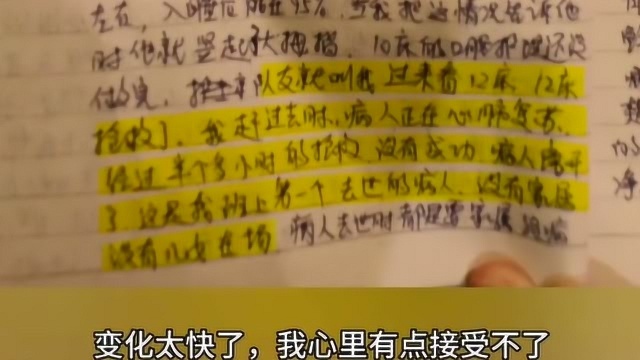 左右，入睡后能在95%，当我把这情况告诉他
时他就竖起大拇指。10床的口腔护理还没
做完，队友就叫我过来看12床，12床
抢救了，我赶过去时，病人正在心肺复苏，
经过半个多小时的抢救，没有成功，病人离开
了，这是我班上第一个去世的病人，没有家属
没有儿女在场，病人去世时都是需家属
变化太快了，我心里有点接受不了